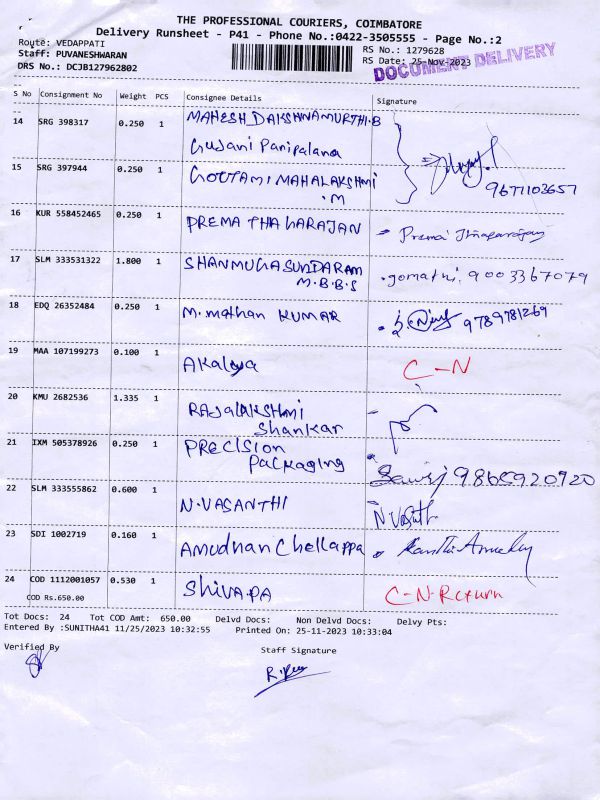 THE PROFESSIONAL COURIERS, COIMBATORE
Delivery Runsheet - P41 - Phone No.:0422-3505555 - Page No.:2
Route: VEDAPPATI
Staff: PUVANESHWARAN
DRS No.: DCJB127962802
RS No.: 1279628
RS Date: 25-Nov-2023
DOCUMENT DELIVERY
S No Consignment No Weight PCS Consignee Details Signature
14 SRG 398317 0.250 1 MAHESH DAKSHNAMURTHI.B
Gujani Paripalana
15 SRG 397944 0.250 1 GOUTAMI MAHALAKSHMI
.M
9677103657
16 KUR 558452465 0.250 1 PREMA THAGARAJAN Prema
17 SLM 333531322 1.800 1 SHANMUGASUNDARAM gomathi. 9003367079
M.B.B.S
18 EDQ 26352484 0.250 1 M.mathan KUMAR 9789781269
19 MAA 107199273 0.100 1 AKalya C-N
20 KMU 2682536 1.335 1 RAJALAKSHMI
Shankar
21 IXM 505378926 0.250 1 PRECISION
Packaging 9865920920
22 SLM 333555862 0.600 1 N.VASANTHI N.Vasath
23 SDI 1002719 0.160 1 Amudhan Chellappa
24 COD 1112001057 0.530 1 SHIVAPA C-N-Return
COD Rs.650.00
Tot Docs: 24 Tot COD Amt: 650.00 Delvd Docs: Non Delvd Docs: Delvy Pts:
Entered By :SUNITHA41 11/25/2023 10:32:55 Printed On: 25-11-2023 10:33:04
Verified By Staff Signature